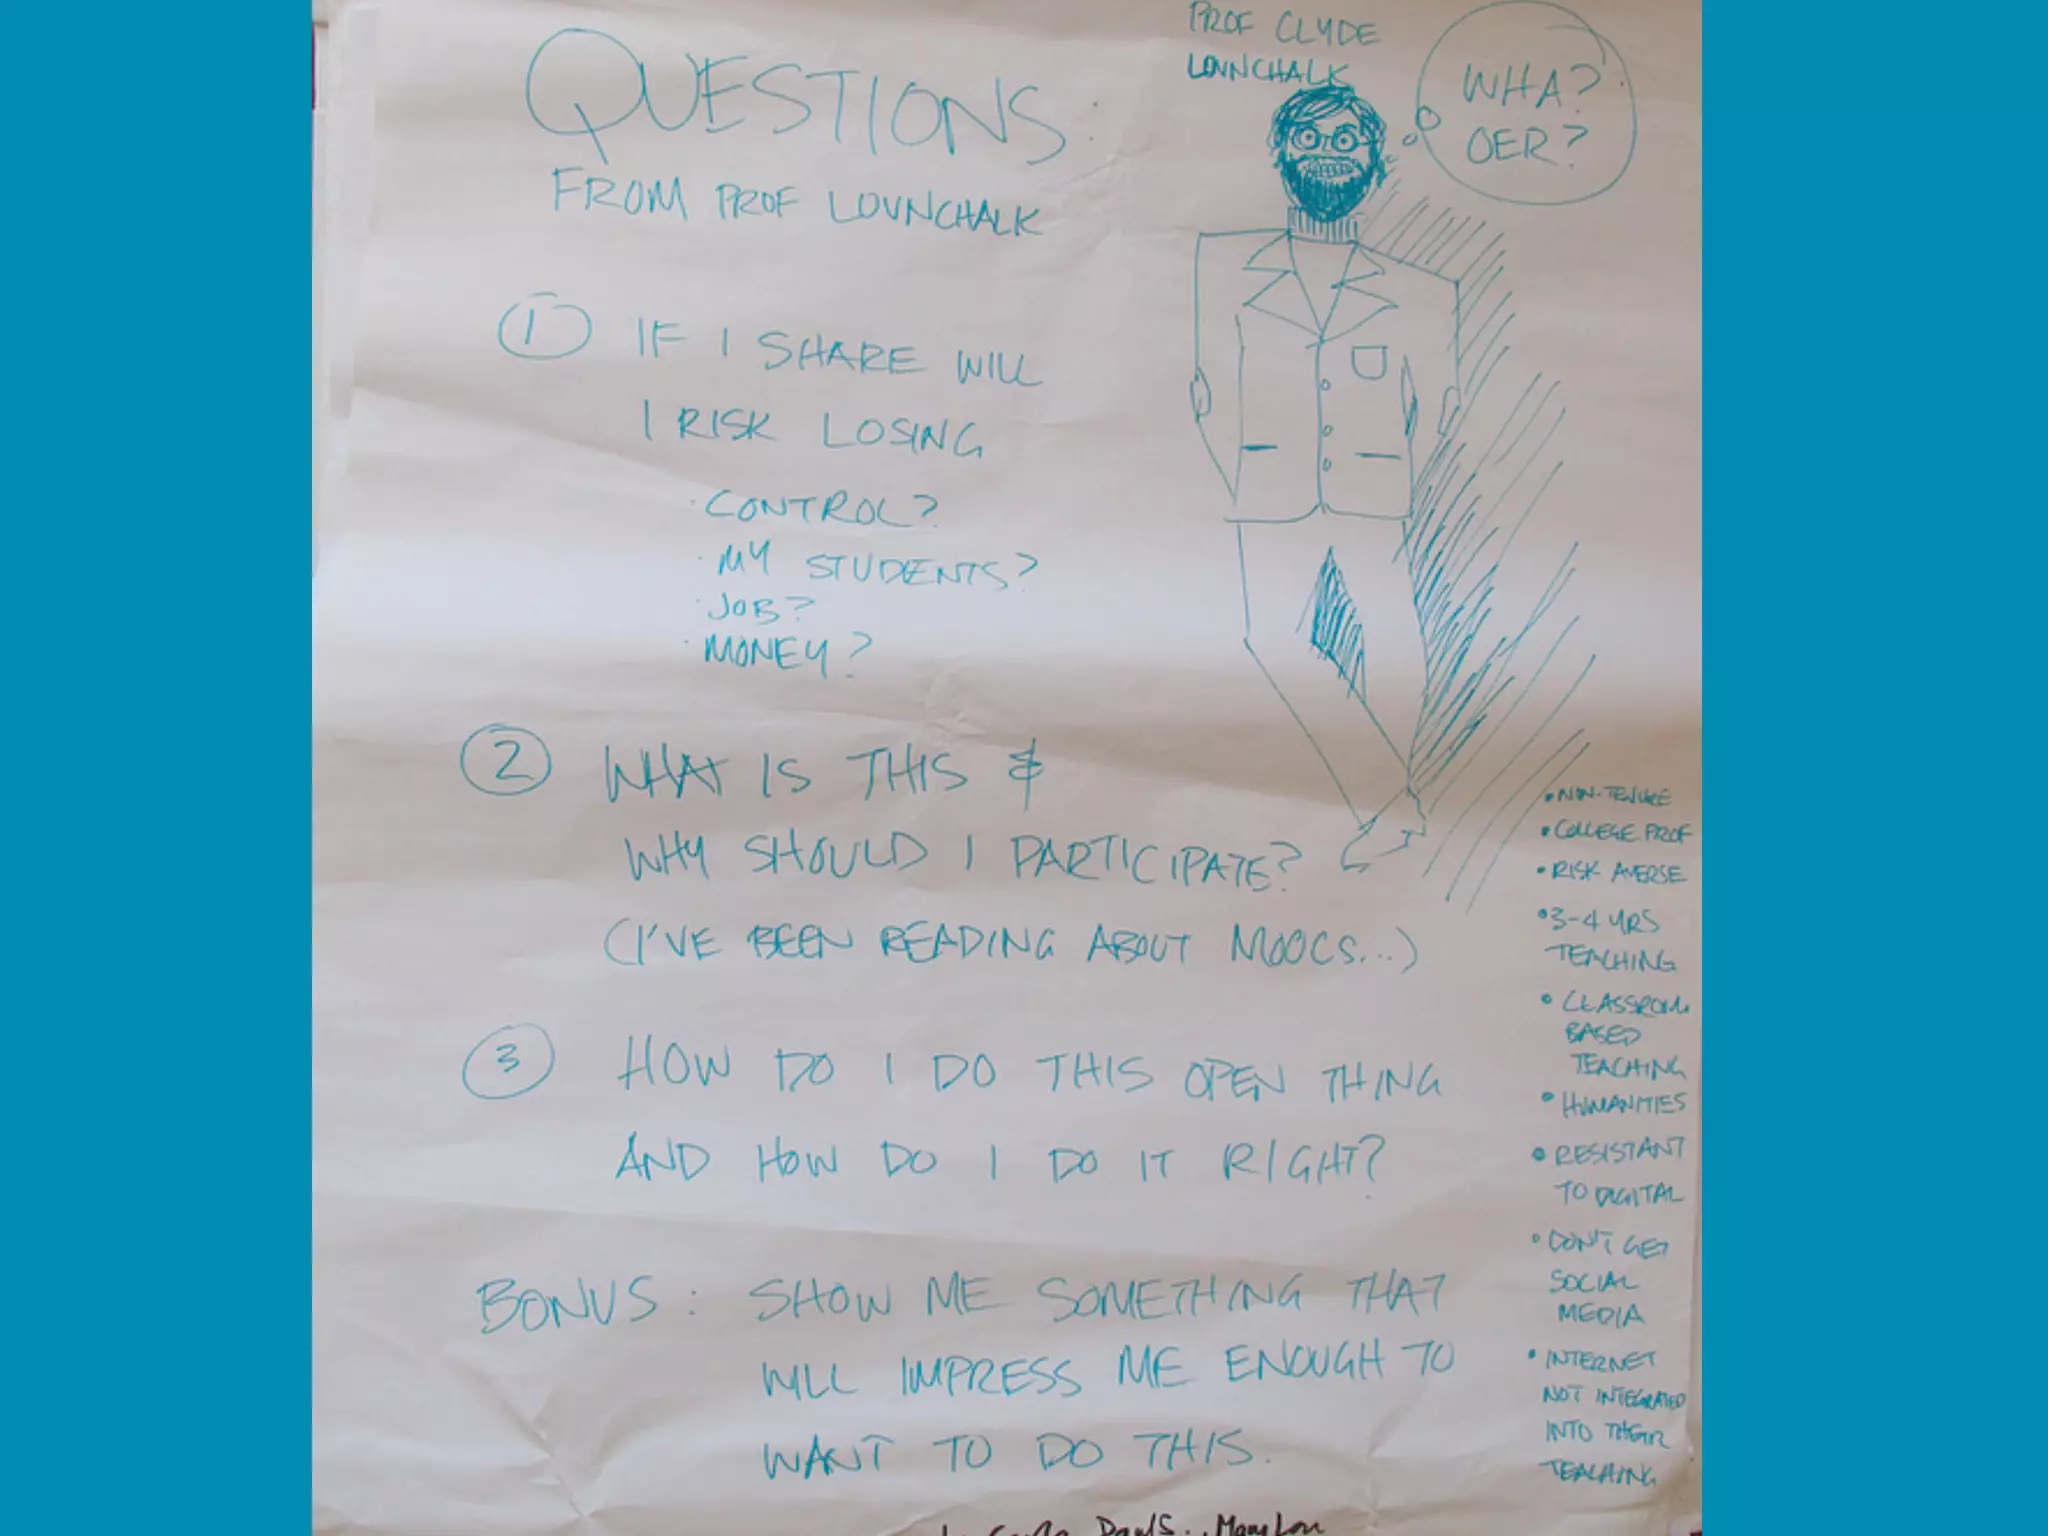 QUESTIONS:
FROM PROF LOVNCHALK
① IF I SHARE WILL
I RISK LOSING
· CONTROL?
· MY STUDENTS?
· JOB?
· MONEY?
② WHAT IS THIS &
WHY SHOULD I PARTICIPATE?
(I'VE BEEN READING ABOUT MOOCS...)
③ HOW DO I DO THIS OPEN THING
AND HOW DO I DO IT RIGHT?
BONUS: SHOW ME SOMETHING THAT
WILL IMPRESS ME ENOUGH TO
WANT TO DO THIS.
PROF CLYDE
LOVNCHALK
WHA?
OER?
• NON-TENURE
• COLLEGE PROF
• RISK AVERSE
• 3-4 YRS
TEACHING
• CLASSROOM
BASED
TEACHING
• HUMANITIES
• RESISTANT
TO DIGITAL
• DON'T GET
SOCIAL
MEDIA
• INTERNET
NOT INTEGRATED
INTO THEIR
TEACHING
PaulS., MaryLou